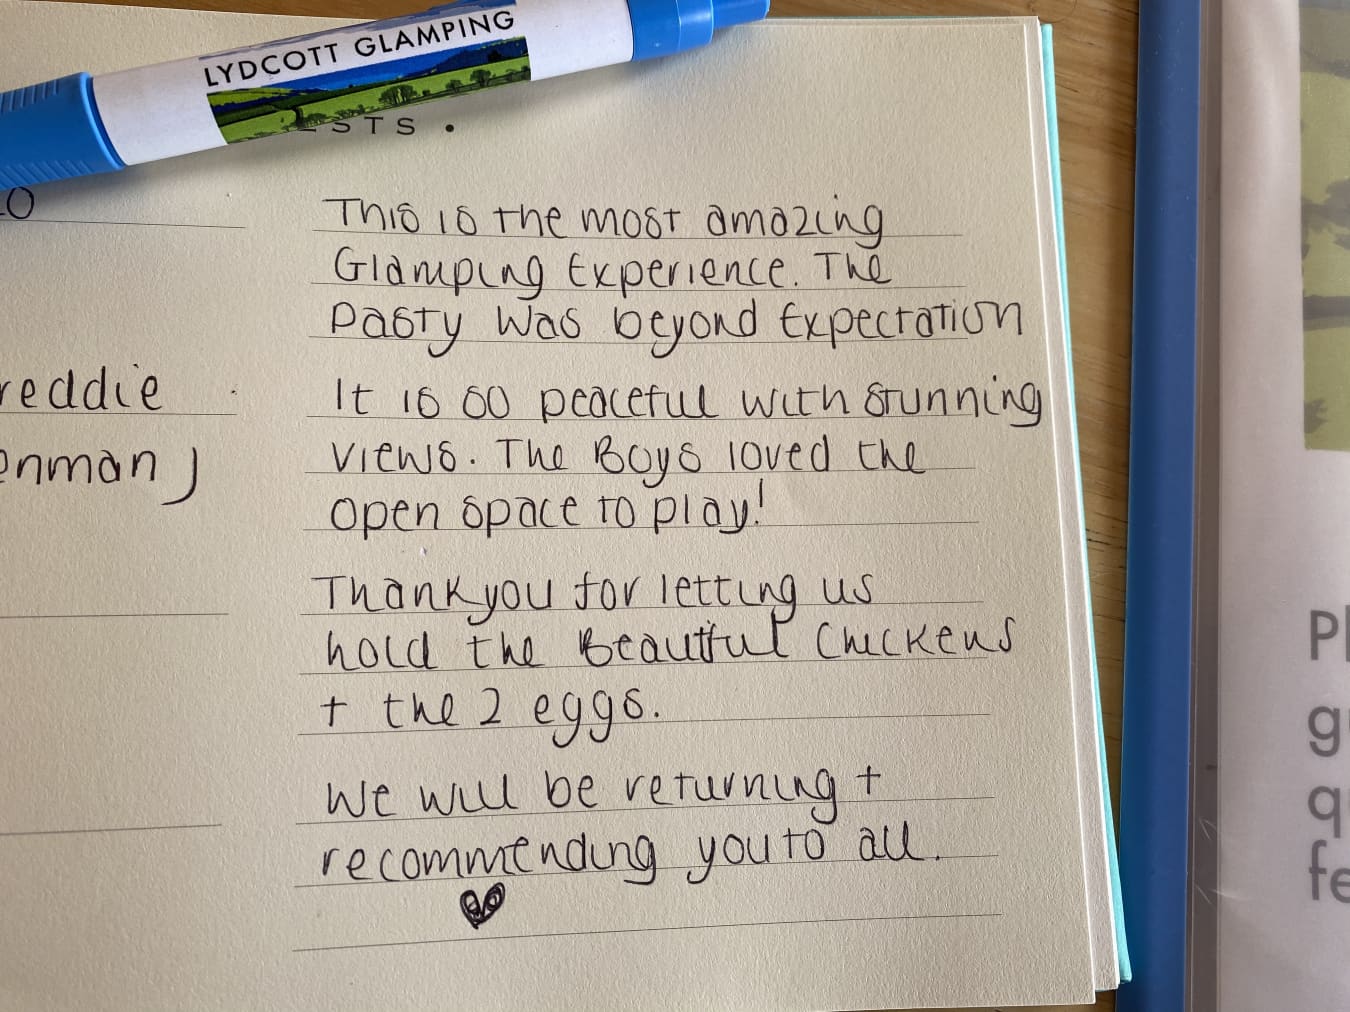 LYDCOTT GLAMPING
STS •
This is the most amazing
Glamping Experience. The
Pasty was beyond Expectation
It is so peaceful with stunning
views. The Boys loved the
open space to play!
Thankyou for letting us
hold the Beautiful Chickens
+ the 2 eggs.
We will be returning +
recommending you to all.
reddie
enman)
Pl
g
q
fe